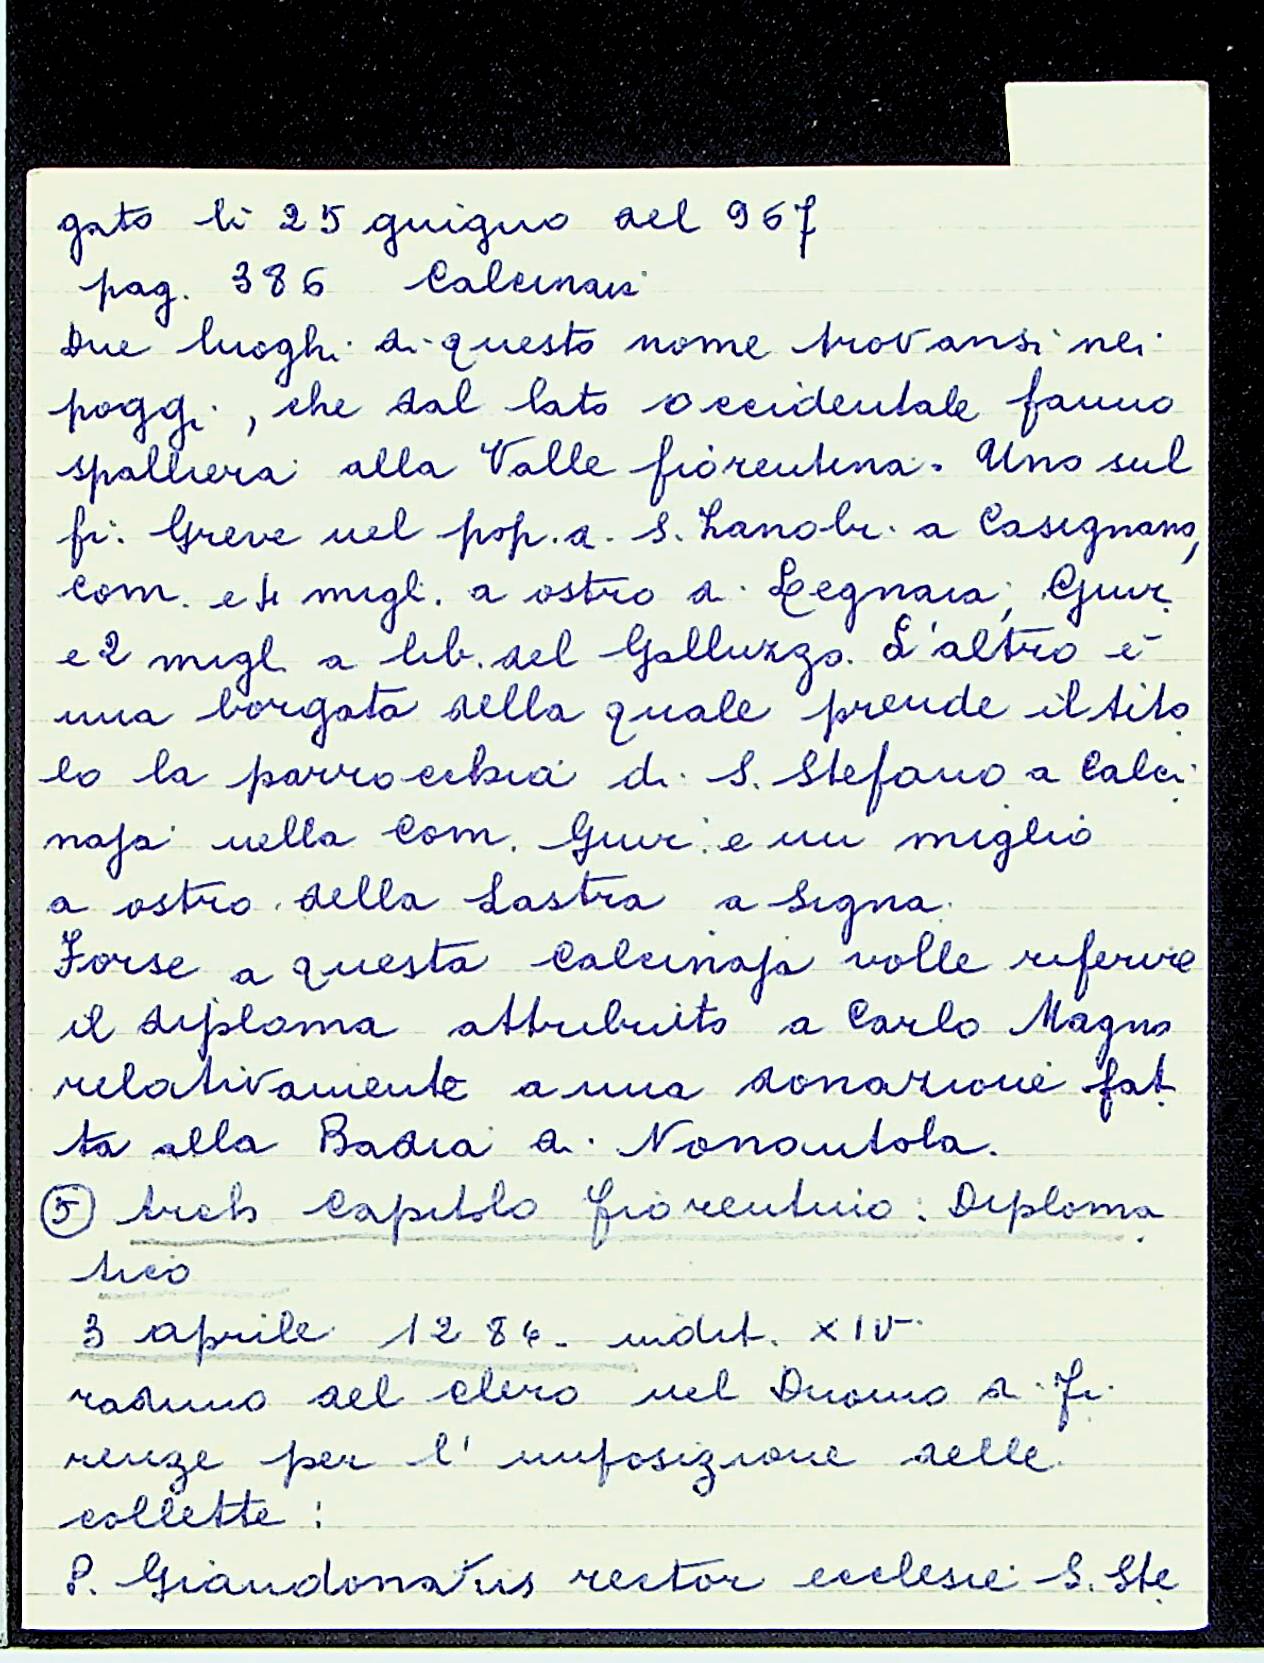 gato li 25 giugno del 967
pag. 386 Calcinaia
Due luoghi di questo nome trovansi nei
poggi, che dal lato occidentale fanno
spalliera alla Valle fiorentina. Uno sul
fi. Greve nel pop. a. S. Zanobi a Casignano,
Com. e 4 migl. a ostro di Legnaia, Giur.
e 2 migl. a lib. del Galluzzo. L'altro è
una borgata della quale prende il tito
lo la parrocchia di S. Stefano a Calci
naja nella Com. Giur. e un miglio
a ostro della Lastra a Signa.
Forse a questa Calcinaja volle riferire
il diploma attribuito a Carlo Magno
relativamente a una donazione fat
ta alla Badia di Nonantola.
⑤ Arch Capitolo fiorentino: Diploma
tico
3 aprile 1284. indit. XIV
raduno del clero nel Duomo di Fi
renze per l'imposizione delle
collette:
P. Giandonatus rector ecclesie S. Ste